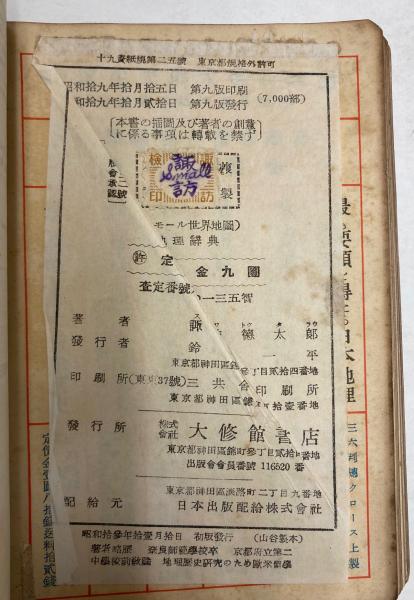 十九査紙規第二五號 東京都規格外許可
昭和拾九年拾月拾五日 第九版印刷
昭和拾九年拾月貳拾日 第九版發行
(7,000部)
本書の插圖及び著者の創案
に係る事項は轉載を禁ず
複製
諏訪
檢印
Small
諏訪
モール世界地圖)
地理辭典
定
金九圓
査定番號
一三五智
著者
諏
德太郎
發行者
鈴
一平
東京都神田區錦町
丁目貳拾四番地
印刷所(東東37號)三共
印刷所
東京都神田區
拾壹番地
發行所
株式會社
大修館書店
東京都神田區錦町參丁目貳拾
番地
出版會會員番號 116520番
東京都神田區淡路町二丁目九番地
配給元
日本出版配給株式會社
昭和拾參年拾壹月拾日 初版發行 (山谷製本)
著者略歷 奈良師範學校卒 京都府立第二
中學校前敎諭 地理歷史硏究のため歐米留學
日本地理
クロース上製